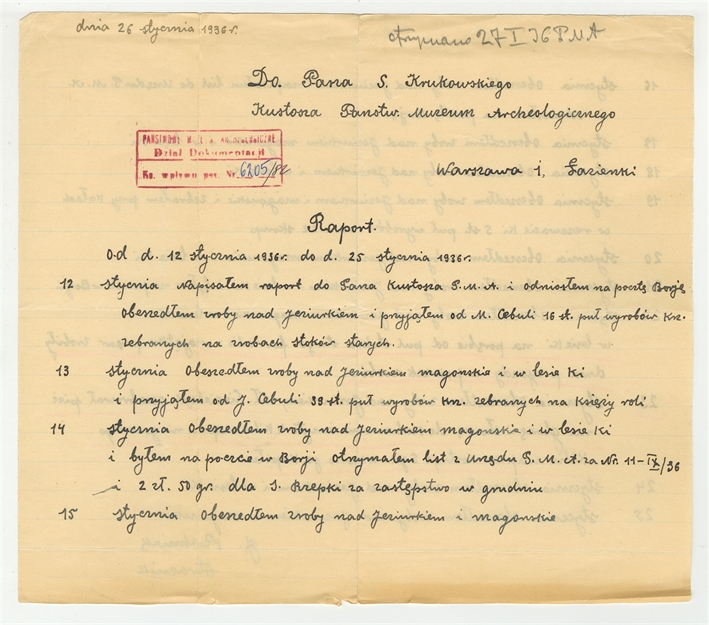 dnia 26 stycznia 1936 r.
otrzymano 27 I 36 PMA
Do. Pana S. Krukowskiego
Kustosza Państw. Muzeum Archeologicznego
PAŃSTWOWE MUZEUM ARCHEOLOGICZNE
Dział Dokumentacji
Ks. wpływu poz. Nr. 6205/82
Warszawa 1, Łazienki
Raport.
Od d. 12 stycznia 1936 r. do d. 25 stycznia 1936 r.
12 stycznia Napisałem raport do Pana Kustosza P.M.A. i odniosłem na pocztę Borję
Obeszedłem zroby nad Jeziurkiem i przyjąłem od M. Cebuli 16 st. puł wyrobów Krz.
zebranych na zrobach stoków starych.
13 stycznia Obeszedłem zroby nad Jeziurkiem magonskie i w lesie Ki
i przyjąłem od J. Cebuli 39 st. puł wyrobów krz. zebranych na Księży roli
14 stycznia Obeszedłem zroby nad Jeziurkiem magonskie i w lesie Ki
i byłem na poczcie w Borji otrzymałem list z Urzędu P.M.A. za Nr. 11-IX/36
i 2 zł. 50 gr. dla J. Rzepki za zastępstwo w grudniu
15 stycznia Obeszedłem zroby nad Jeziurkiem i magonskie